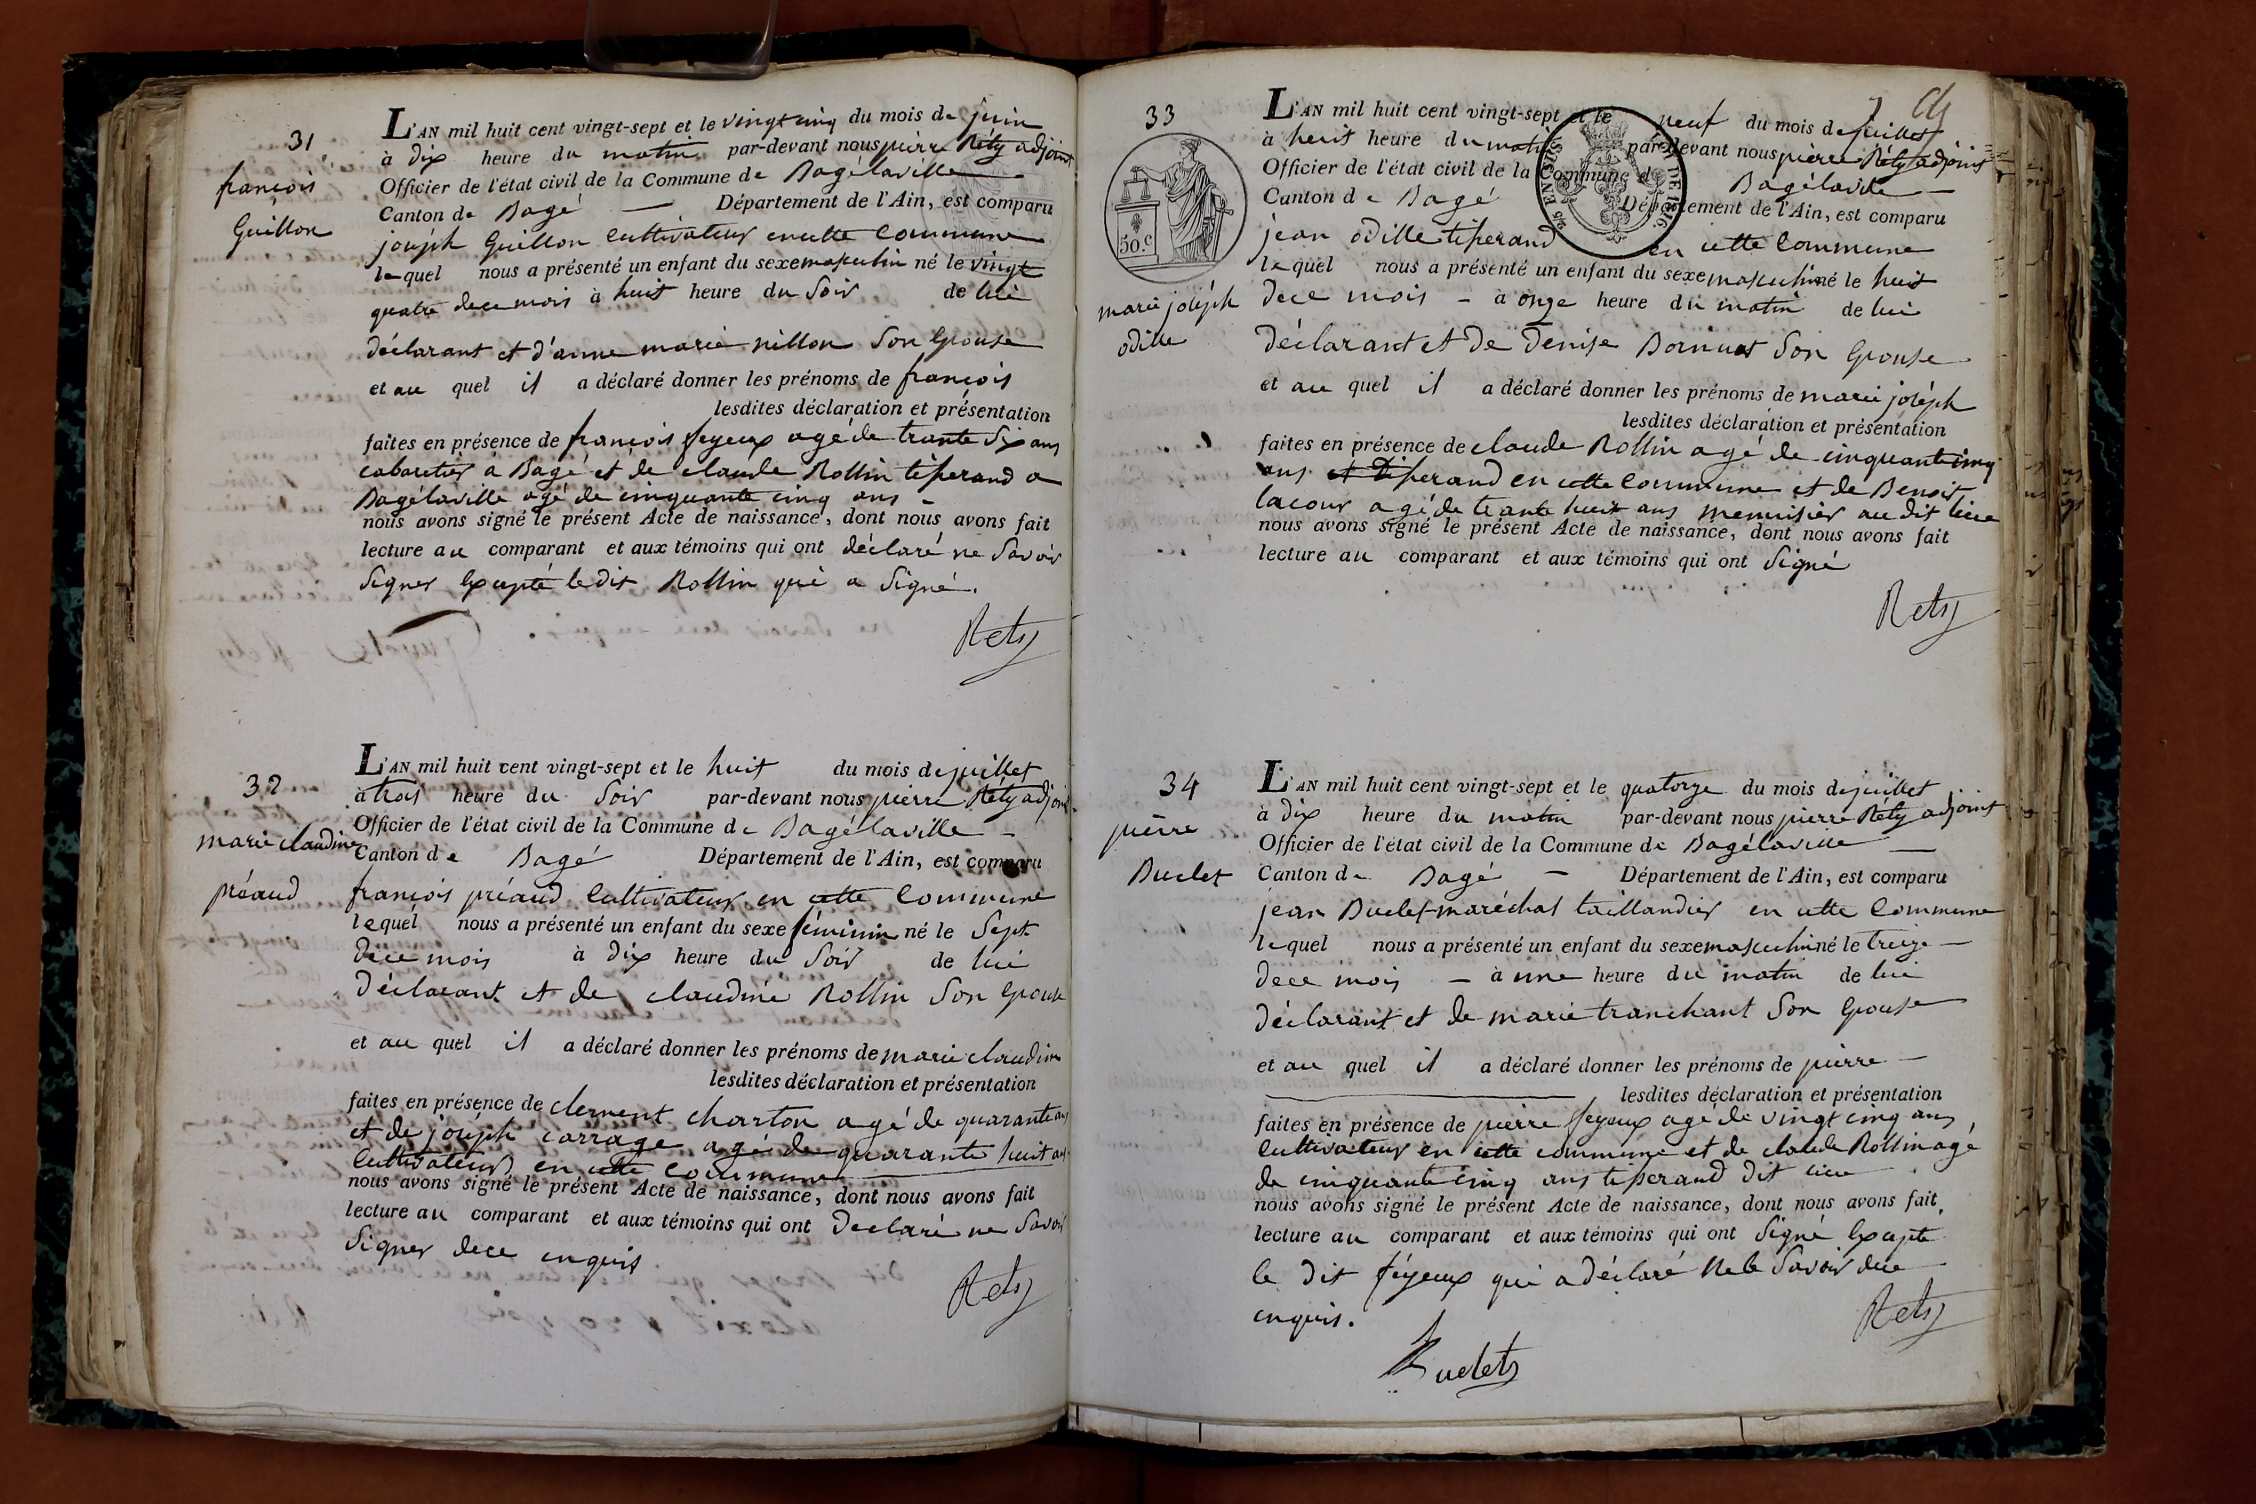 31
françois
Guillon
L'AN mil huit cent vingt-sept et le vingt cinq du mois de juin
à dix heure du matin par-devant nous pierre Réty adjoint
Officier de l'état civil de la Commune de Bagélaville
Canton de Bagé — Département de l'Ain, est comparu
joséph Guillon cultivateur en cette commune
lequel nous a présenté un enfant du sexe masculin né le vingt
quatre dece mois à huit heure du soir de lui
déclarant et d'anne marie nillon son Epouse
et au quel il a déclaré donner les prénoms de françois
lesdites déclaration et présentation
faites en présence de françois feyeux agé de trante six ans
cabaretier à Bagé et de claude Rollin tisserand a
Bagélaville agé de cinquante cinq ans -
nous avons signé le présent Acte de naissance, dont nous avons fait
lecture au comparant et aux témoins qui ont déclaré ne savoir
signer Excepté ledit Rollin qui a signé.
Rety
32
marie claudine
préaud
L'AN mil huit cent vingt-sept et le huit du mois de juillet
à trois heure du soir par-devant nous pierre Réty adjoint
Officier de l'état civil de la Commune de Bagélaville -
Canton de Bagé Département de l'Ain, est comparu
françois préaud cultivateur en cette commune
lequel nous a présenté un enfant du sexe féminin né le sept
dece mois à dix heure du soir de lui
déclarant et de claudine Rollin son Epouse
et au quel il a déclaré donner les prénoms de marie claudine
lesdites déclaration et présentation
faites en présence de clement charton agé de quarante ans
et de joséph carrage agé de quarante huit ans
cultivateurs en cette commune
nous avons signé le présent Acte de naissance, dont nous avons fait
lecture au comparant et aux témoins qui ont declaré ne savoir
signer dece enquis
Rety
33
50.c
marie joséph
odille
L'AN mil huit cent vingt-sept et le neuf du mois de juillet
à huit heure du matin par-devant nous pierre Réty adjoint
Officier de l'état civil de la Commune de Bagélaville —
Canton de Bagé Département de l'Ain, est comparu
jean odille tisserand en cette commune
lequel nous a présenté un enfant du sexe masculin né le huit
dece mois - à onze heure du matin de lui
déclarant et de denise Borniat son Epouse
et au quel il a déclaré donner les prénoms de marie joséph
lesdites déclaration et présentation
faites en présence de claude Rollin agé de cinquante cinq
ans tisserand en cette commune et de Benoit
lacour agé de trante huit ans menuisier au dit lieu
nous avons signé le présent Acte de naissance, dont nous avons fait
lecture au comparant et aux témoins qui ont signé
Rety
34
pierre
Buclet
L'AN mil huit cent vingt-sept et le quatorze du mois de juillet
à dix heure du matin par-devant nous pierre Réty adjoint
Officier de l'état civil de la Commune de Bagélaville —
Canton de Bagé - Département de l'Ain, est comparu
jean Buclet maréchal taillandier en cette commune
lequel nous a présenté un enfant du sexe masculin né le treize —
dece mois - à une heure du matin de lui
déclarant et de marie tranchant son Epouse
et au quel il a déclaré donner les prénoms de pierre —
lesdites déclaration et présentation
faites en présence de pierre feyeux agé de vingt cinq ans
cultivateur en cette commune et de claude Rollin agé
de cinquante cinq ans tisserand dit lieu
nous avons signé le présent Acte de naissance, dont nous avons fait
lecture au comparant et aux témoins qui ont signé Excepte
le dit féyeux qui a déclaré ne le savoir dece
enquis.
Rety
Buclet